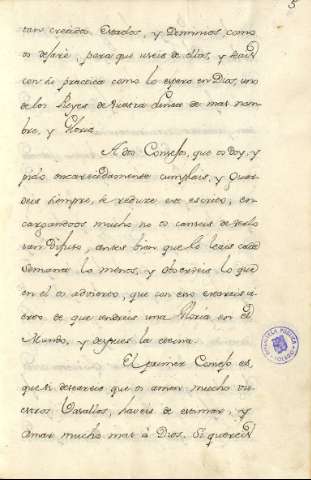 5
tan crecidos Estados, y Dominios como
os dejaré, para que useis de ellos, y seais
con su practica como lo espero en Dios, uno
de los Reyes de nuestra linea de mas nom-
bre, y Gloria.
A dos Consejos, que os doy, y
pido encarecidamente cumplais, y guar-
deis siempre, se reduze este escrito, en-
cargandoos mucho no os canseis de verlo
tan difuso, antes bien que lo leais cada
semana lo menos, y observeis lo que
en el os advierto, que con esto estareis
cierto de que tendreis una Gloria en el
Mundo, y despues la eterna.
El primer Consejo es,
que si deseareis que os amen mucho vu-
estros Vasallos, haveis de estimar, y
amar mucho mas à Dios. Si quereis
BIBLIOTECA PUBLICA
TOLEDO